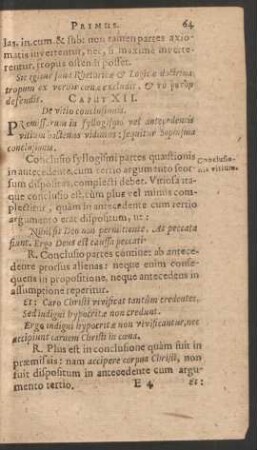 PRIMUS. 64
las, in, cum, & sub: non tamen partes axio-
matis inverterentur, nec, si maximè inverte-
rentur, tropus ostendi posset.
Sic egimus sana Rhetoricæ & Logicæ doctrina
tropum ex verbis cœnæ
defendit.
CAPUT XII.
De vitio conclusionis.
PRæmissarum in syllogismo vel antecedentis
vitium hactenus vidimus: sequitur
conclusionis.
Conclusio syllogismi partes quæstionis
in antecedente cum tertio argumento seor-
sum dispositas, complecti debet. Vitiosa ita-
que conclusio est, cùm plus vel minus com-
plectitur, quàm in antecedente cum tertio
argumento erat dispositum, ut:
Conclusio-
nis vitium.
Nihil fit Deo non permittente. At peccata
fiunt. Ergo Deus est caussa peccati.
R. Conclusio partes continet ab antece-
dente prorsus alienas: neque enim conse-
quens in propositione, neque antecedens in
assumptione reperitur.
et: Caro Christi vivificat tantùm credentes,
Sed indigni hypocritæ non credunt.
Ergo indigni hypocritæ non vivificantur, nec
accipiunt carnem Christi in cœna.
R. Plus est in conclusione quàm fuit in
præmissis: nam accipere corpus Christi, non
fuit dispositum in antecedente cum argu-
mento tertio. E 4 et: